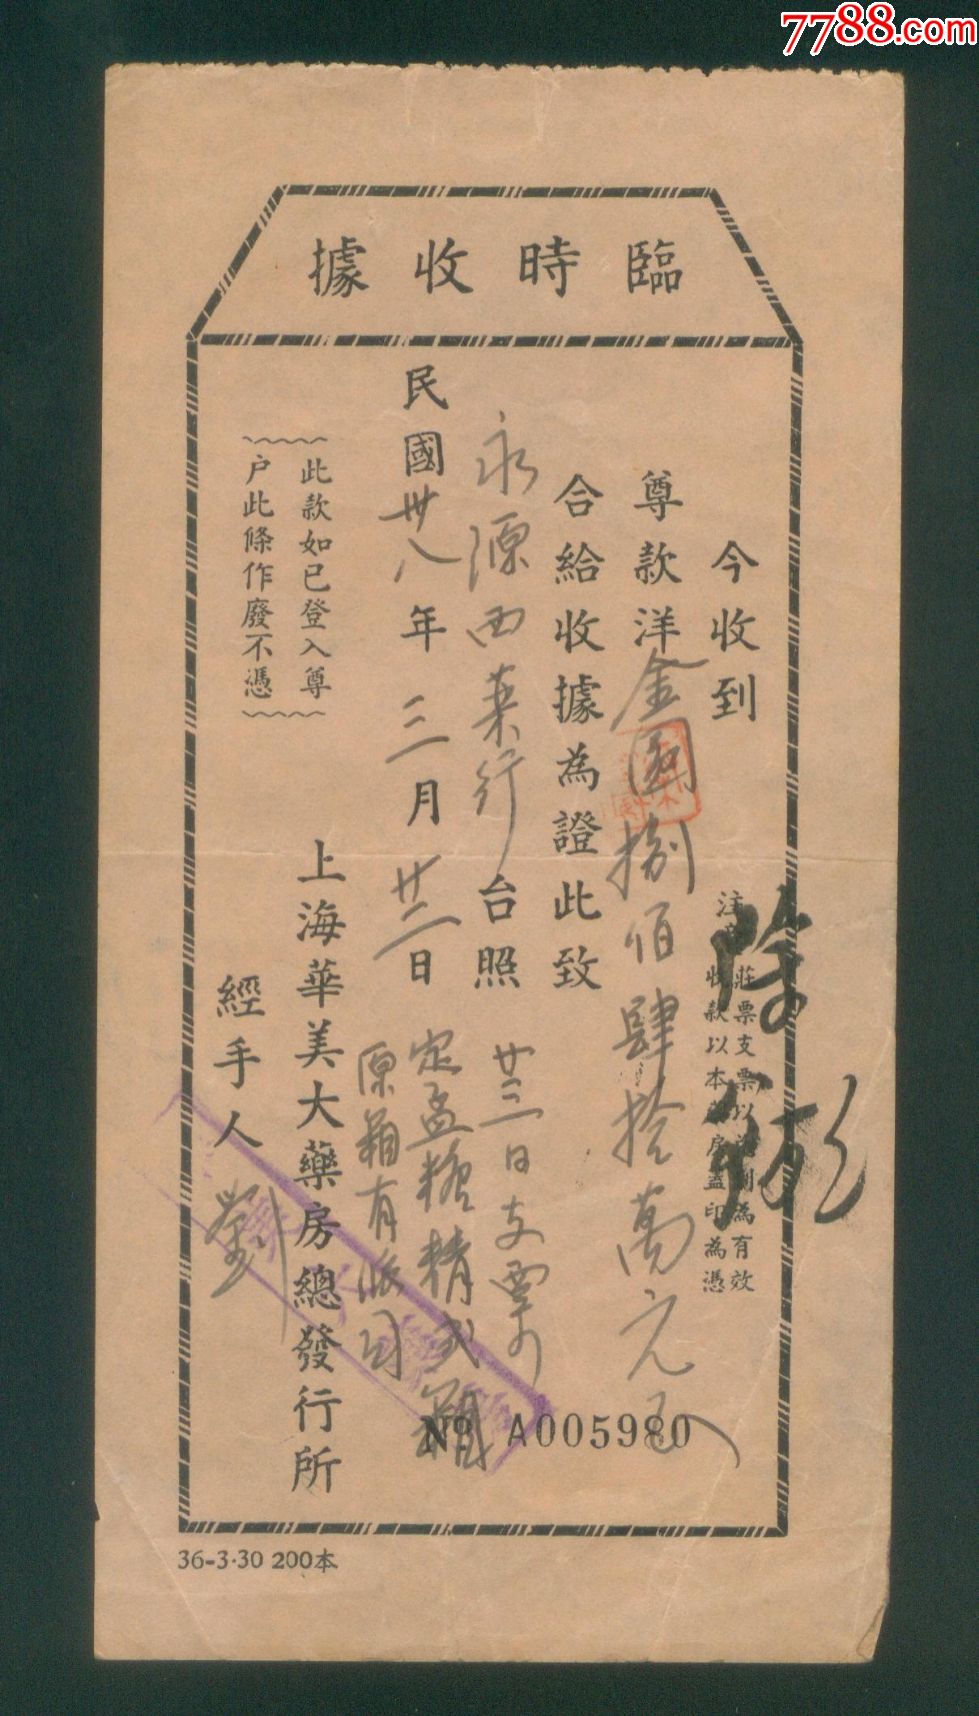 7788.com
臨時收據
今收到
尊款洋金圓捌佰肆拾萬元正
合給收據為證此致
永源西藥行台照
民國卅八年三月廿二日
廿三日支票
定孟糖精弍箱
原箱有
此款如已登入尊
户此條作廢不憑
上海華美大藥房總發行所
經手人 劉
莊票支票以為有效
收款以本房蓋印為憑
No A005980
36-3·30 200本